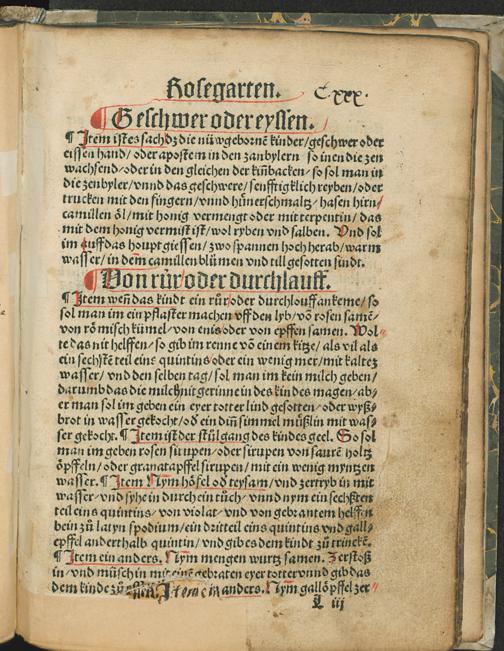 Rosegarten. C.xxx.
Geschwer oder eyssen.
¶ Item ist es sach dz die nüwgebornē kinder/geschwer oder
eissen hand/oder apostem in den zanbylern so inen die zen
wachsend/oder in den gleichen der kiñbacken/so sol man in
die zenbyler/vnnd das geschwere/senfftigklich reyben/oder
trucken mit den fingern/vnnd hünerschmaltz/hasen hirn/
camillen öl/mit honig vermengt oder mit terpentin/das
mit dem honig vermist ist/wol ryben vnd salben. Vnd sol
im auff das houpt giessen/zwo spannen hoch herab/warm
wasser/in dem camillen blůmen vnd till gesotten sindt.
Von růr/oder durchlauff.
¶ Item weñ das kindt ein růr/oder durchlouff ankeme/so
sol man im ein pflaster machen vff den lyb/vō rosen samē/
von römisch kümel/von enis/oder von epffen samen. Wol-
te das nit helffen/so gib im renne vō einem kitze/als vil als
ein sechste teil eins quintins/oder ein wenig mer/mit kaltē
wasser/vnd den selben tag/sol man im kein milch geben/
darumb das die milch nit gerinne in des kindes magen/ab-
er man sol im geben ein eyer totter lind gesotten/oder wyß-
brot in wasser gekocht/od ein diñ simmel müßlin mit was-
ser gekocht. ¶ Item ist der stůlgang des kindes geel. So sol
man im geben rosen sirupen/oder sirupen von saurē holtz
öpffeln/oder granatapffel sirupen/mit ein wenig myntzen
wasser. ¶ Item Nym hōsel od teysam/vnd zertryb in mit
wasser/vnd syhe in durch ein tůch/vnnd nym ein sechsten
teil eins quintins/von violat/vnd von gebrantem helffen
bein zů latyn spodium/ein dritteil eins quintins vnd gall-
epffel anderthalb quintin/vnd gib es dem kindt zů trinckē.
¶ Item ein anders. Nym mengen wurtz samen. Zerstoß
in/vnd müsch in mit einē gebraten eyer totter vnnd gib das
dem kinde zů Item ein anders. Nym gallöpffel zer-
Q iij